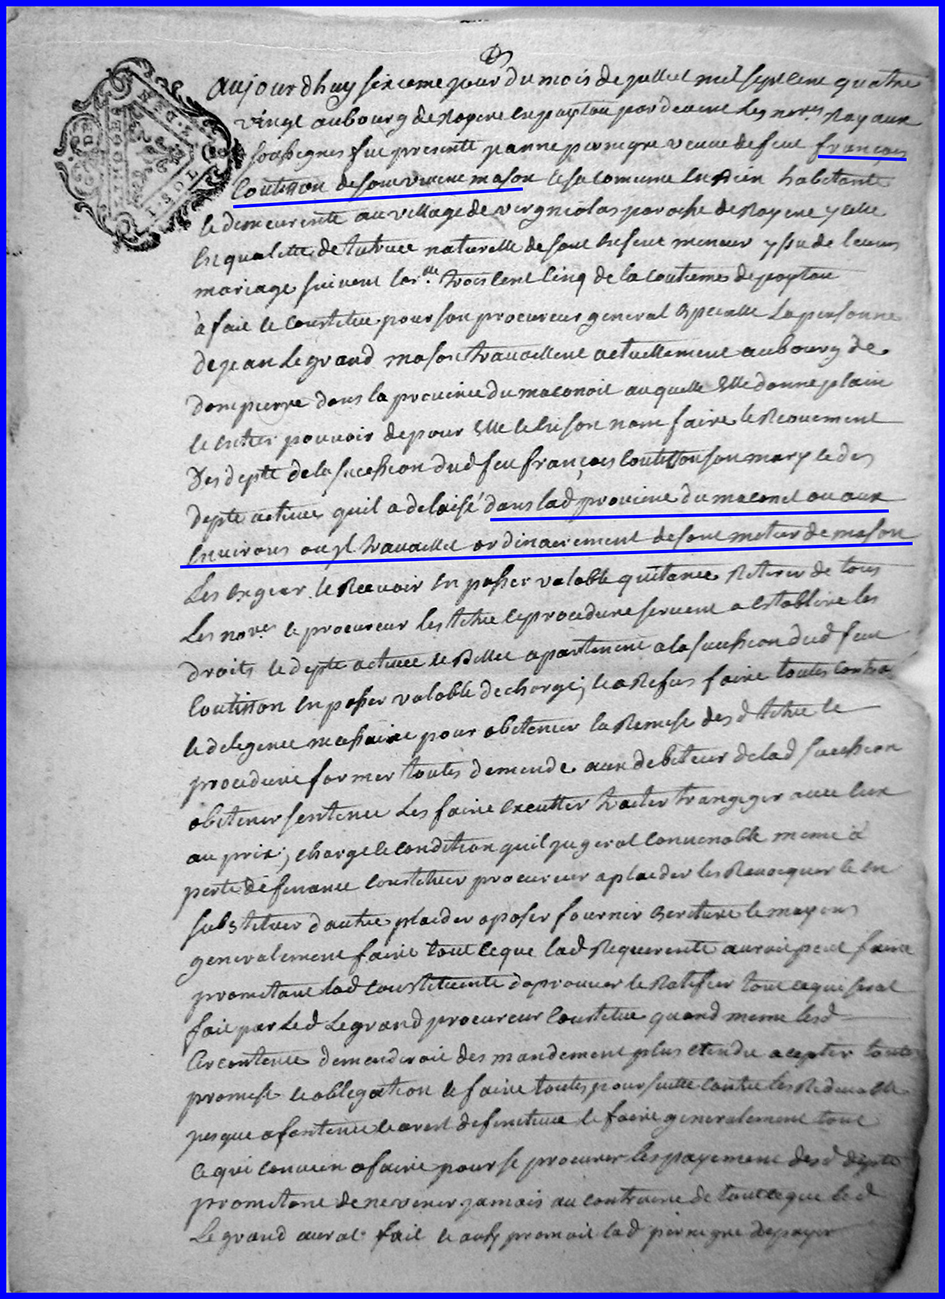 aujourdhuy sixieme jour du mois de jullet mil sept cent quatre
vingt au bourg de Royere en poytou par devant les no.res Roy aux
soussignes fut presente janne peirigne veuve de feu françois
Coutisson de sont vivent mason et sa comune en bien habitante
et demeurente au village de vergniolas paroche de Royere y celle
en qualitte de tutrice naturelle de sont enfent mineur yssu de leurs
mariage suivent lar.lle trois cent cinq de la coutumes de poytou
à fait et constitue pour son procureur general & special la personne
de jean Legrand mason travaillent actuellement au bourg de
dompierre dans la province du maconois au quelle Elle donne plain
et entier pouvoir de pour Elle et en son nom faire le Recouvement
des depte de la sucession dud feu françois Coutisson son mary et des
depte active quil a delaisé dans lad province du maconet ou aux
Environs ou jl travaillet ordinairement de sont metier de mason
Les exgier le Recevoir en passer valable quitance Retirer de tous
Les no.res et procureur les titre et procedure servent a establire les
droits et depte active et Billet apartenent a la sucession dud feu
Coutisson en passer valable decharge, et a Refus faire toutes contra
et delegence nessaire pour obttenir la Remise des d titre et
procedure former toutes demende aux debiteur de lad sucession
obttenir sentence Les faire excutter traiter trangiger avec Eux
au prix, charge et condition quil jugerat convenable meme à
perte de finance Constituer procureur a plaider les Revocquer et en
substituer d'autre plaider oposer fournir Ecriture et moyens
generalement faire tout ce que lad Requerente auroit peut faire
promettant lad constituente daprouver et Ratifier tout ce qui serat
fait par led Legrand procureur constitue quand meme les d
circontence demenderoit des mandement plus etendu acepter toutes
promese et oblegation et faire toutes poursuitte contre les Redevable
jusque a sentence et arest definitive et faire generalement tout
ce qui convien a faire pour se procurer les payement des d depte
promettant de ne venir jamais au contraire de tout ce que led
Legrand aurat fait et aussy promait lad peirigne de payer